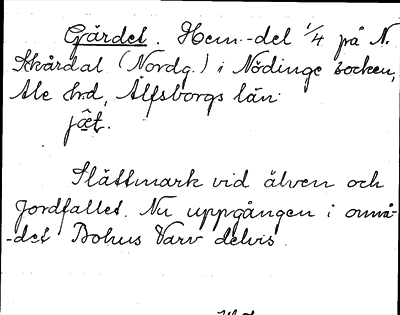 Gärdet. Hem.-del 1/4 på N.
Skårdal (Nordg.) i Nödinge socken,
Ale hrd, Älfsborgs län.
Slättmark vid älven och
Jordfallet. Nu uppgången i områ-
-det Bohus Varv delvis.